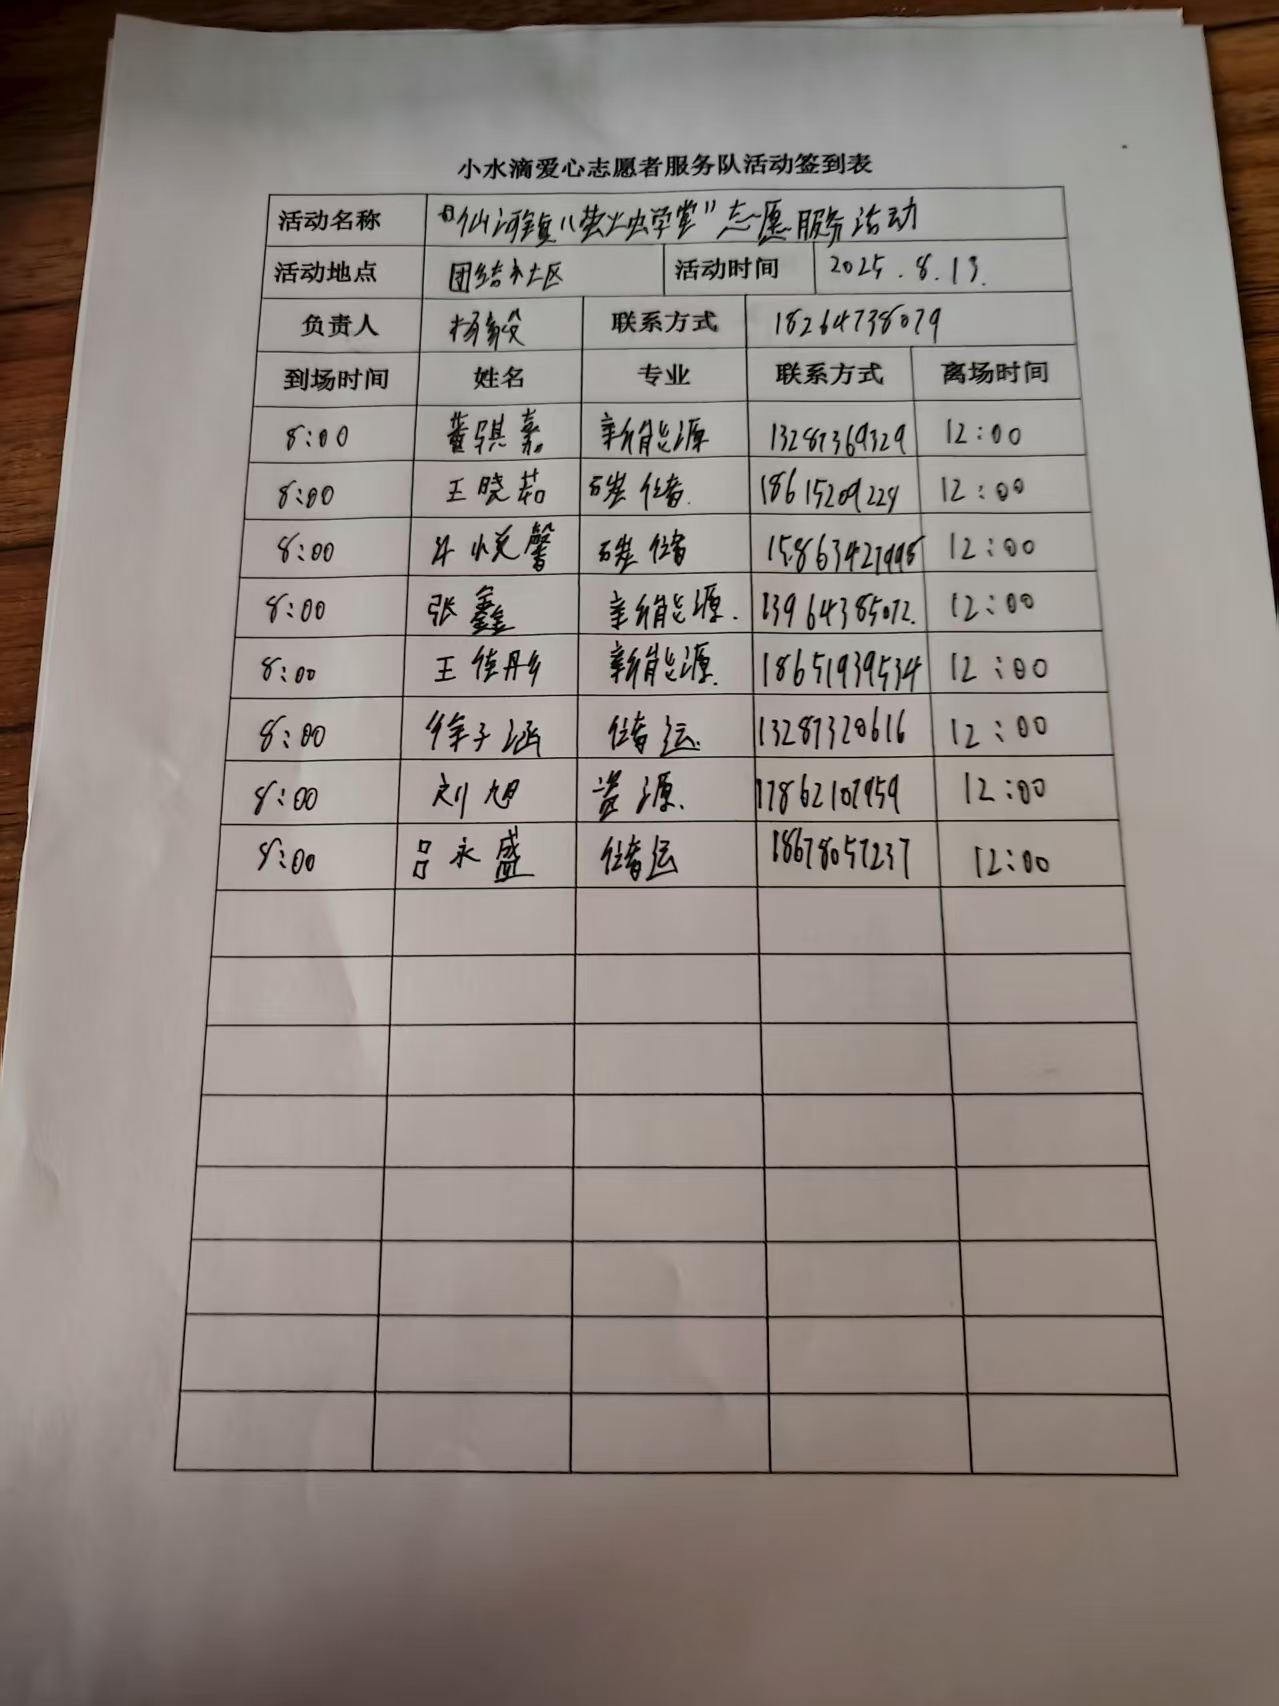 小水滴爱心志愿者服务队活动签到表
活动名称 仙河镇“萤火虫学堂”志愿服务活动
活动地点 团结社区 活动时间 2025.8.13.
负责人 杨毅 联系方式 18264738079
到场时间 姓名 专业 联系方式 离场时间
8:00 黄骐嘉 新能源 13287369329 12:00
8:00 王晓茹 碳储. 18615209228 12:00
8:00 悦馨 碳储 15863421998 12:00
8:00 张鑫 新能源. 13964385072. 12:00
8:00 王德彤 新能源. 18651939534 12:00
8:00 徐子涵 储运. 13287320616 12:00
8:00 刘旭 资源. 17862107959 12:00
8:00 吕永盛 储运 18678057237 12:00